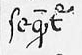 ſeq̄t²